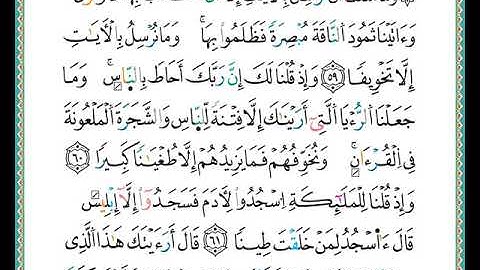 وَءَاتَيْنَا ثَمُودَ النَّاقَةَ مُبْصِرَةً فَظَلَمُوا۟ بِهَا ۚ وَمَا نُرْسِلُ بِالْآيَٰتِ
إِلَّا تَخْوِيفًا ٥٩ وَإِذْ قُلْنَا لَكَ إِنَّ رَبَّكَ أَحَاطَ بِالنَّاسِ ۚ وَمَا
جَعَلْنَا الرُّءْيَا الَّتِىٓ أَرَيْنَٰكَ إِلَّا فِتْنَةً لِّلنَّاسِ وَالشَّجَرَةَ الْمَلْعُونَةَ
فِى الْقُرْءَانِ ۚ وَنُخَوِّفُهُمْ فَمَا يَزِيدُهُمْ إِلَّا طُغْيَٰنًا كَبِيرًا ٦٠
وَإِذْ قُلْنَا لِلْمَلَٰٓئِكَةِ اسْجُدُوا۟ لِأَدَمَ فَسَجَدُوٓا۟ إِلَّآ إِبْلِيسَ
قَالَ ءَأَسْجُدُ لِمَنْ خَلَقْتَ طِينًا ٦١ قَالَ أَرَءَيْتَكَ هَٰذَا الَّذِى